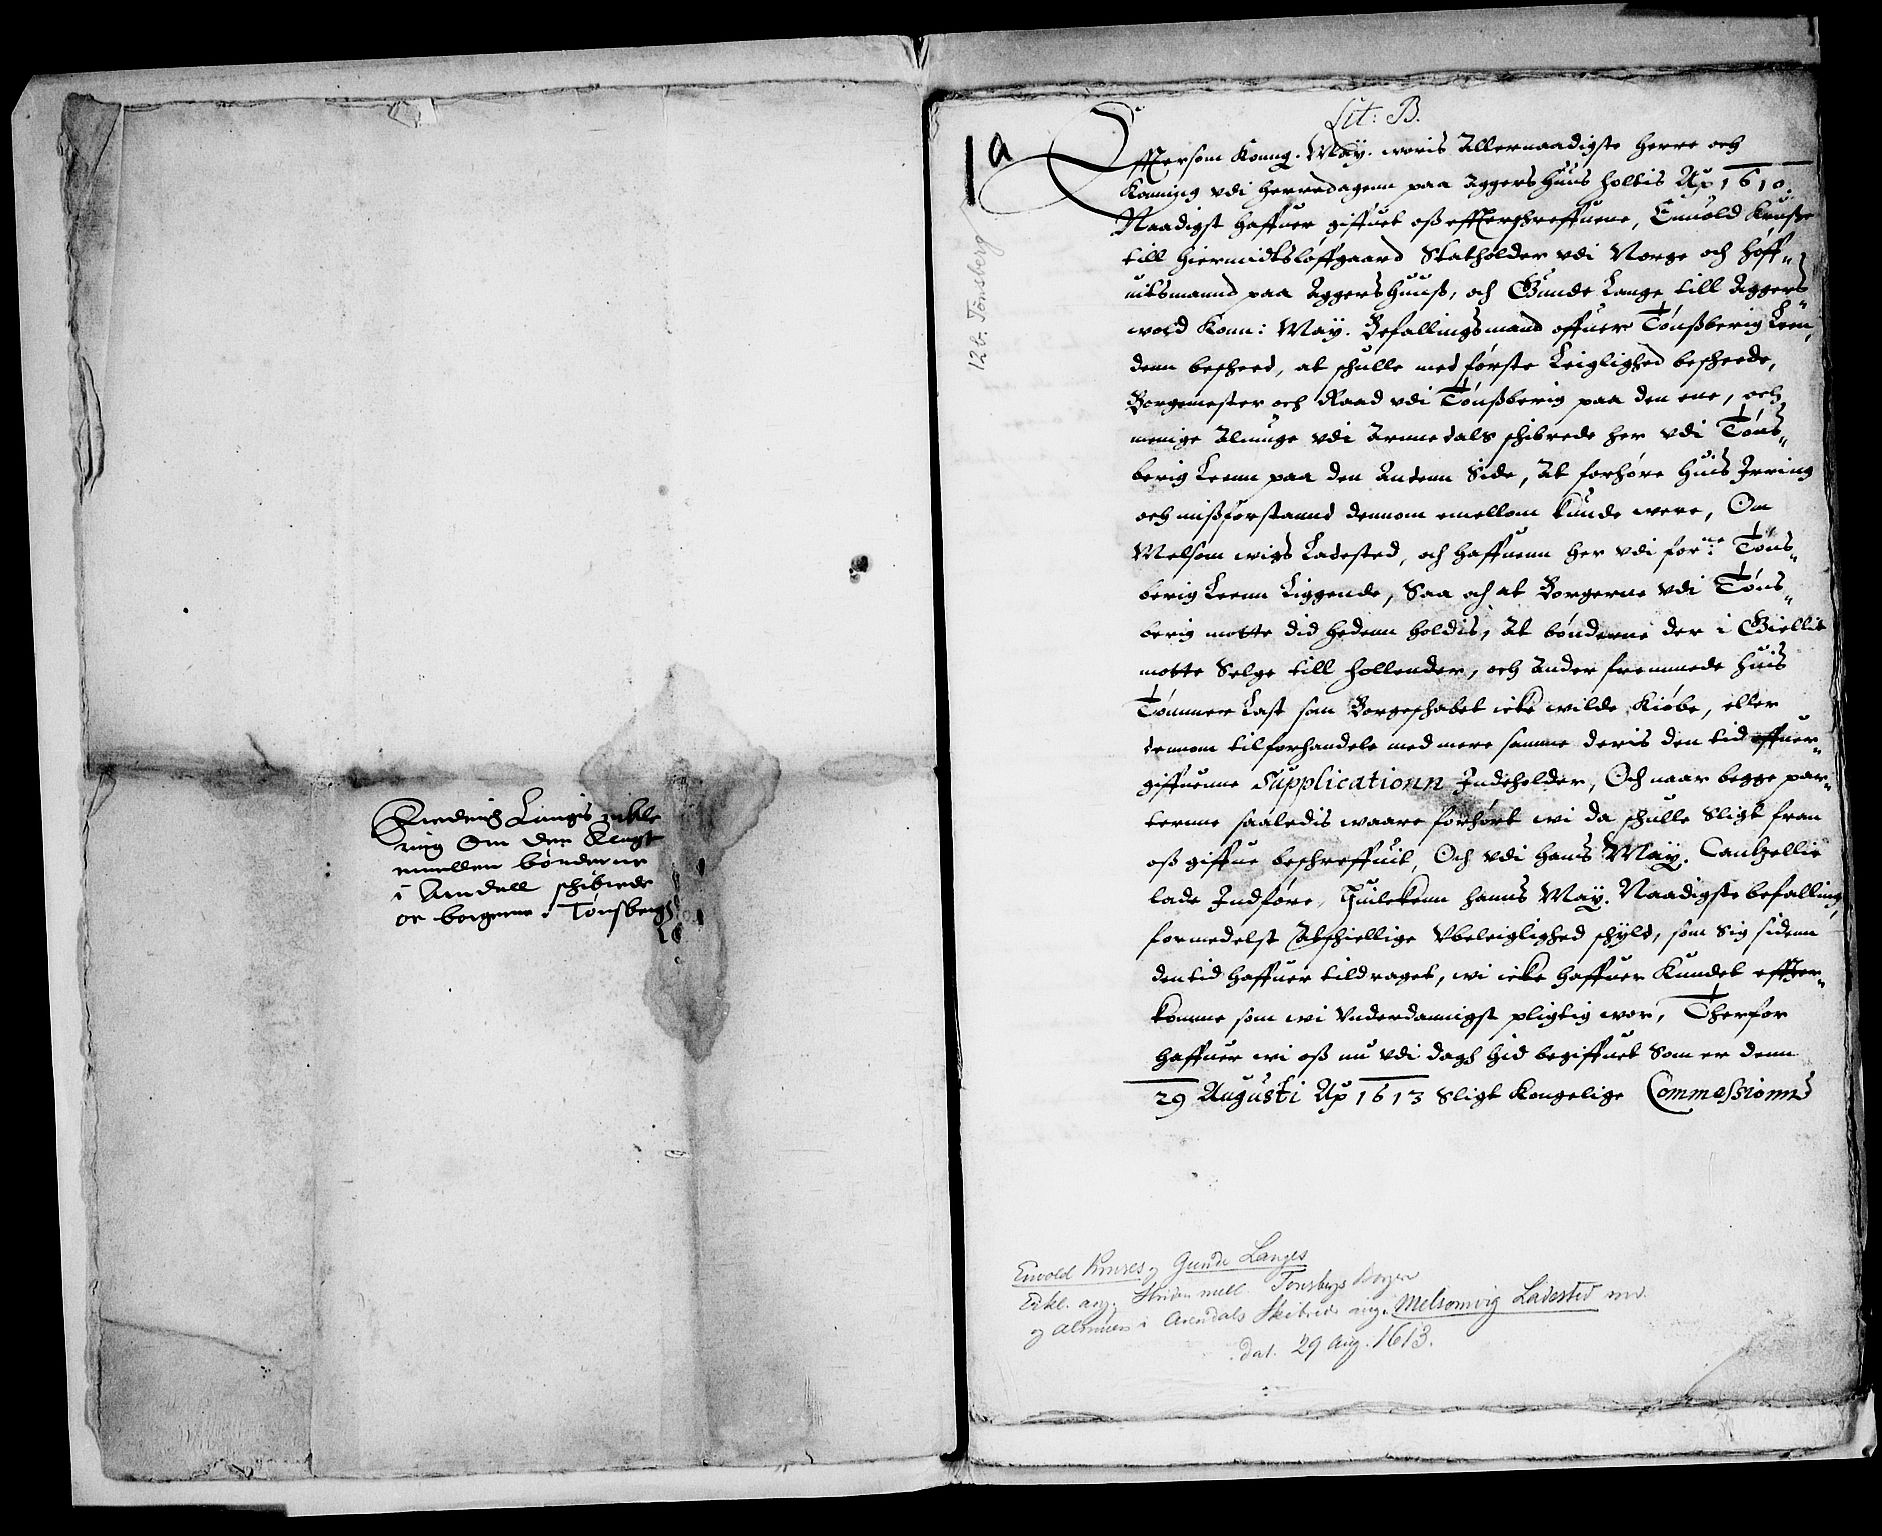 Friedrich Langis erkle
ring Om den Trengt
emellom bønderne
i Arndall schibrede
oc borgerne i Tønsbergh
Lit: B.
1a
12b. Tønsberg
Efftersom Konng. May. woris Allernaadigste Herre och
Konning vdi Herredagenn paa Aggershuus holtis Ao 1610.
Naadigst haffuer giffuet oß effterschreffuene, Enuold Kruße
till Hiermidtsløffgaard Statholder vdi Norge och Høff„
uitsmannd paa Aggershuuß, och Gunde Lange till Aggers„
wold Konn: May. Befallingsmand offuer Tønßberig Leen„
denn besheed, at schulle med første Leiglighed bescheede,
Borgemester och Raad vdi Tønßberig paa den ene, och
menige Almuge vdi Arnnedals schibrede her vdi Tøns„
berig Leenn paa den Andenn Side, At forhøre huis Irring
och mißforstannd dennom emellom kunde were, Om
Melsom wigs Ladested, och haffnenn her vdi forne: Tøns„
berig Leenn Liggende, Saa och at Borgerne vdi Tøns„
berig motte did hedenn holdis, At bønderne der i Giellit
motte Selge till Hollender, och Ander fremmede huis
Tømmer Last som Borgeschabet icke wilde Kiøbe, eller
dennom tilforhandele med mere samme deris den tid offuer„
giffuenne Supplicationn Indeholder, Och naar begge par„
terne saaledis waare forhørt wi da schulle Sligt fran
oß giffue beschreffuit, Och vdi hans May. Cantzellie
lade Indføre, Huilckenn hanns May. Naadigste befalling,
formedelst Atschiellige Vbeleiglighed schyld, som Sig sidenn
den tid haffuer tildraget, wi icke haffuer Kundet effter„
komme som wi Vnderdannigst pligtig wor, Therfor
haffuer wi oß nu vdi dagh hid begiffuet Som er denn
29 Augusti Ao 1613 Sligt Kongelige Commeßionns
Enwold Kruses og Gunde Langes
Erkl. ang. Striden mell. Tønsbergs Borgere
og Almuen i Arendals Skibrede ang. Melsomvig Ladested m.v.
dat. 29 Aug. 1613.